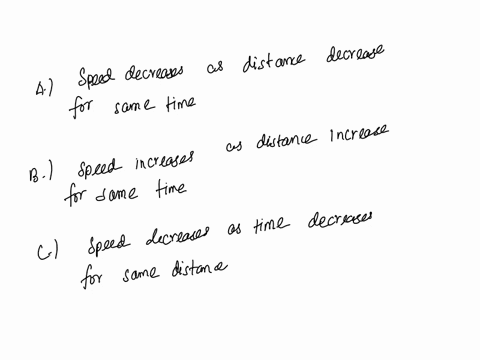 A) Speed decreases as distance decrease
for same time
B.) Speed increases as distance Increase
for same time
C) Speed decreases as time decreases
for same distance